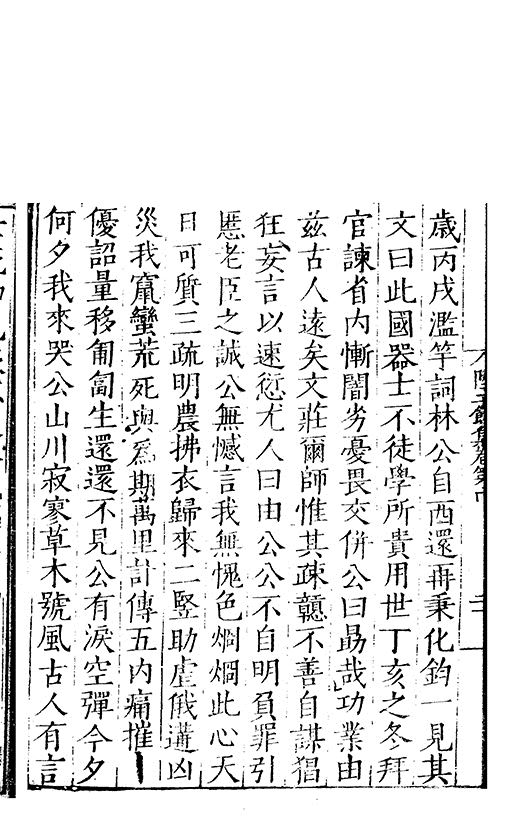 歲丙戌濫竽詞林公自西還再秉化鈞一見其
文曰此國器士不徒學所貴用世丁亥之冬拜
官諫省内慚闇劣憂畏交併公曰勗哉功業由
兹古人遠矣文莊爾師惟其疎戇不善自謀猖
狂妄言以速愆尤人曰由公公不自明負罪引
慝老臣之誠公無憾言我無愧色烱烱此心天
日可質三疏明農拂衣歸來二竪助虐俄遘凶
災我竄蠻荒死與爲期萬里訃傳五内痛摧
優詔量移匍匐生還還不見公有淚空彈今夕
何夕我來哭公山川寂寥草木號風古人有言